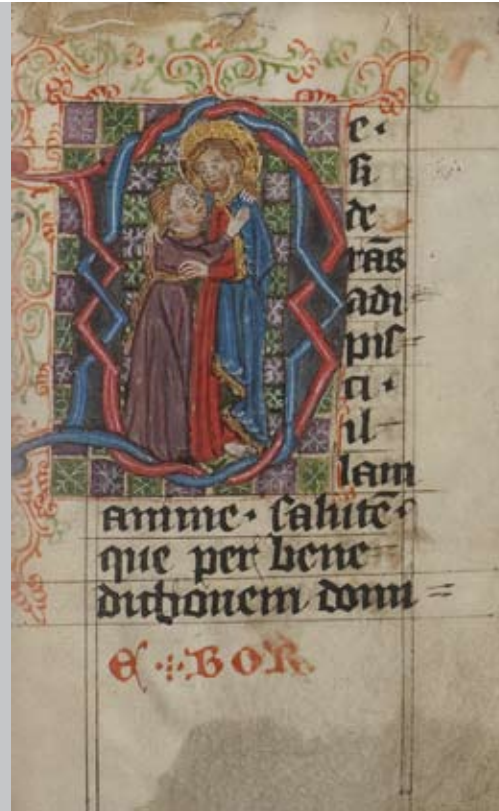 De·
si
de
rãs
adi
pis=
ci·
il-
lam
anime· salutē·
que per bene
dictionem domi=
E ·:· BOR